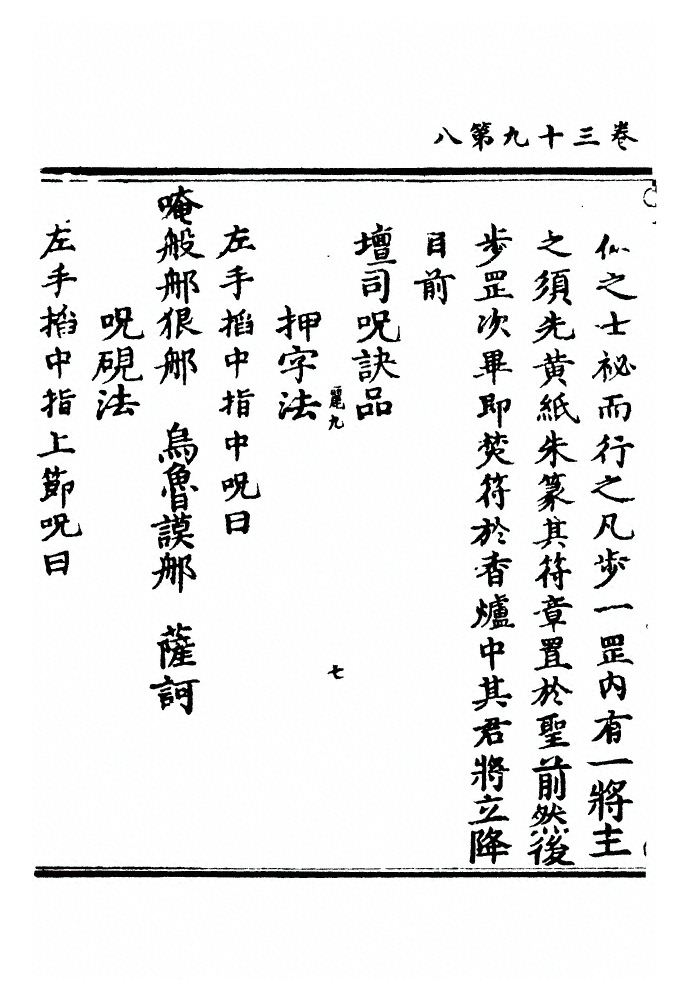 卷三十九第八
仙之士祕而行之凡步一罡内有一將主
之須先黄紙朱篆其符章置於聖前然後
步罡次畢即焚符於香爐中其君將立降
目前
壇司呪訣品
麗九
七
押字法
左手搯中指中呪曰
唵般郍狠郍 烏魯謨郍 薩訶
呪硯法
左手搯中指上節呪曰